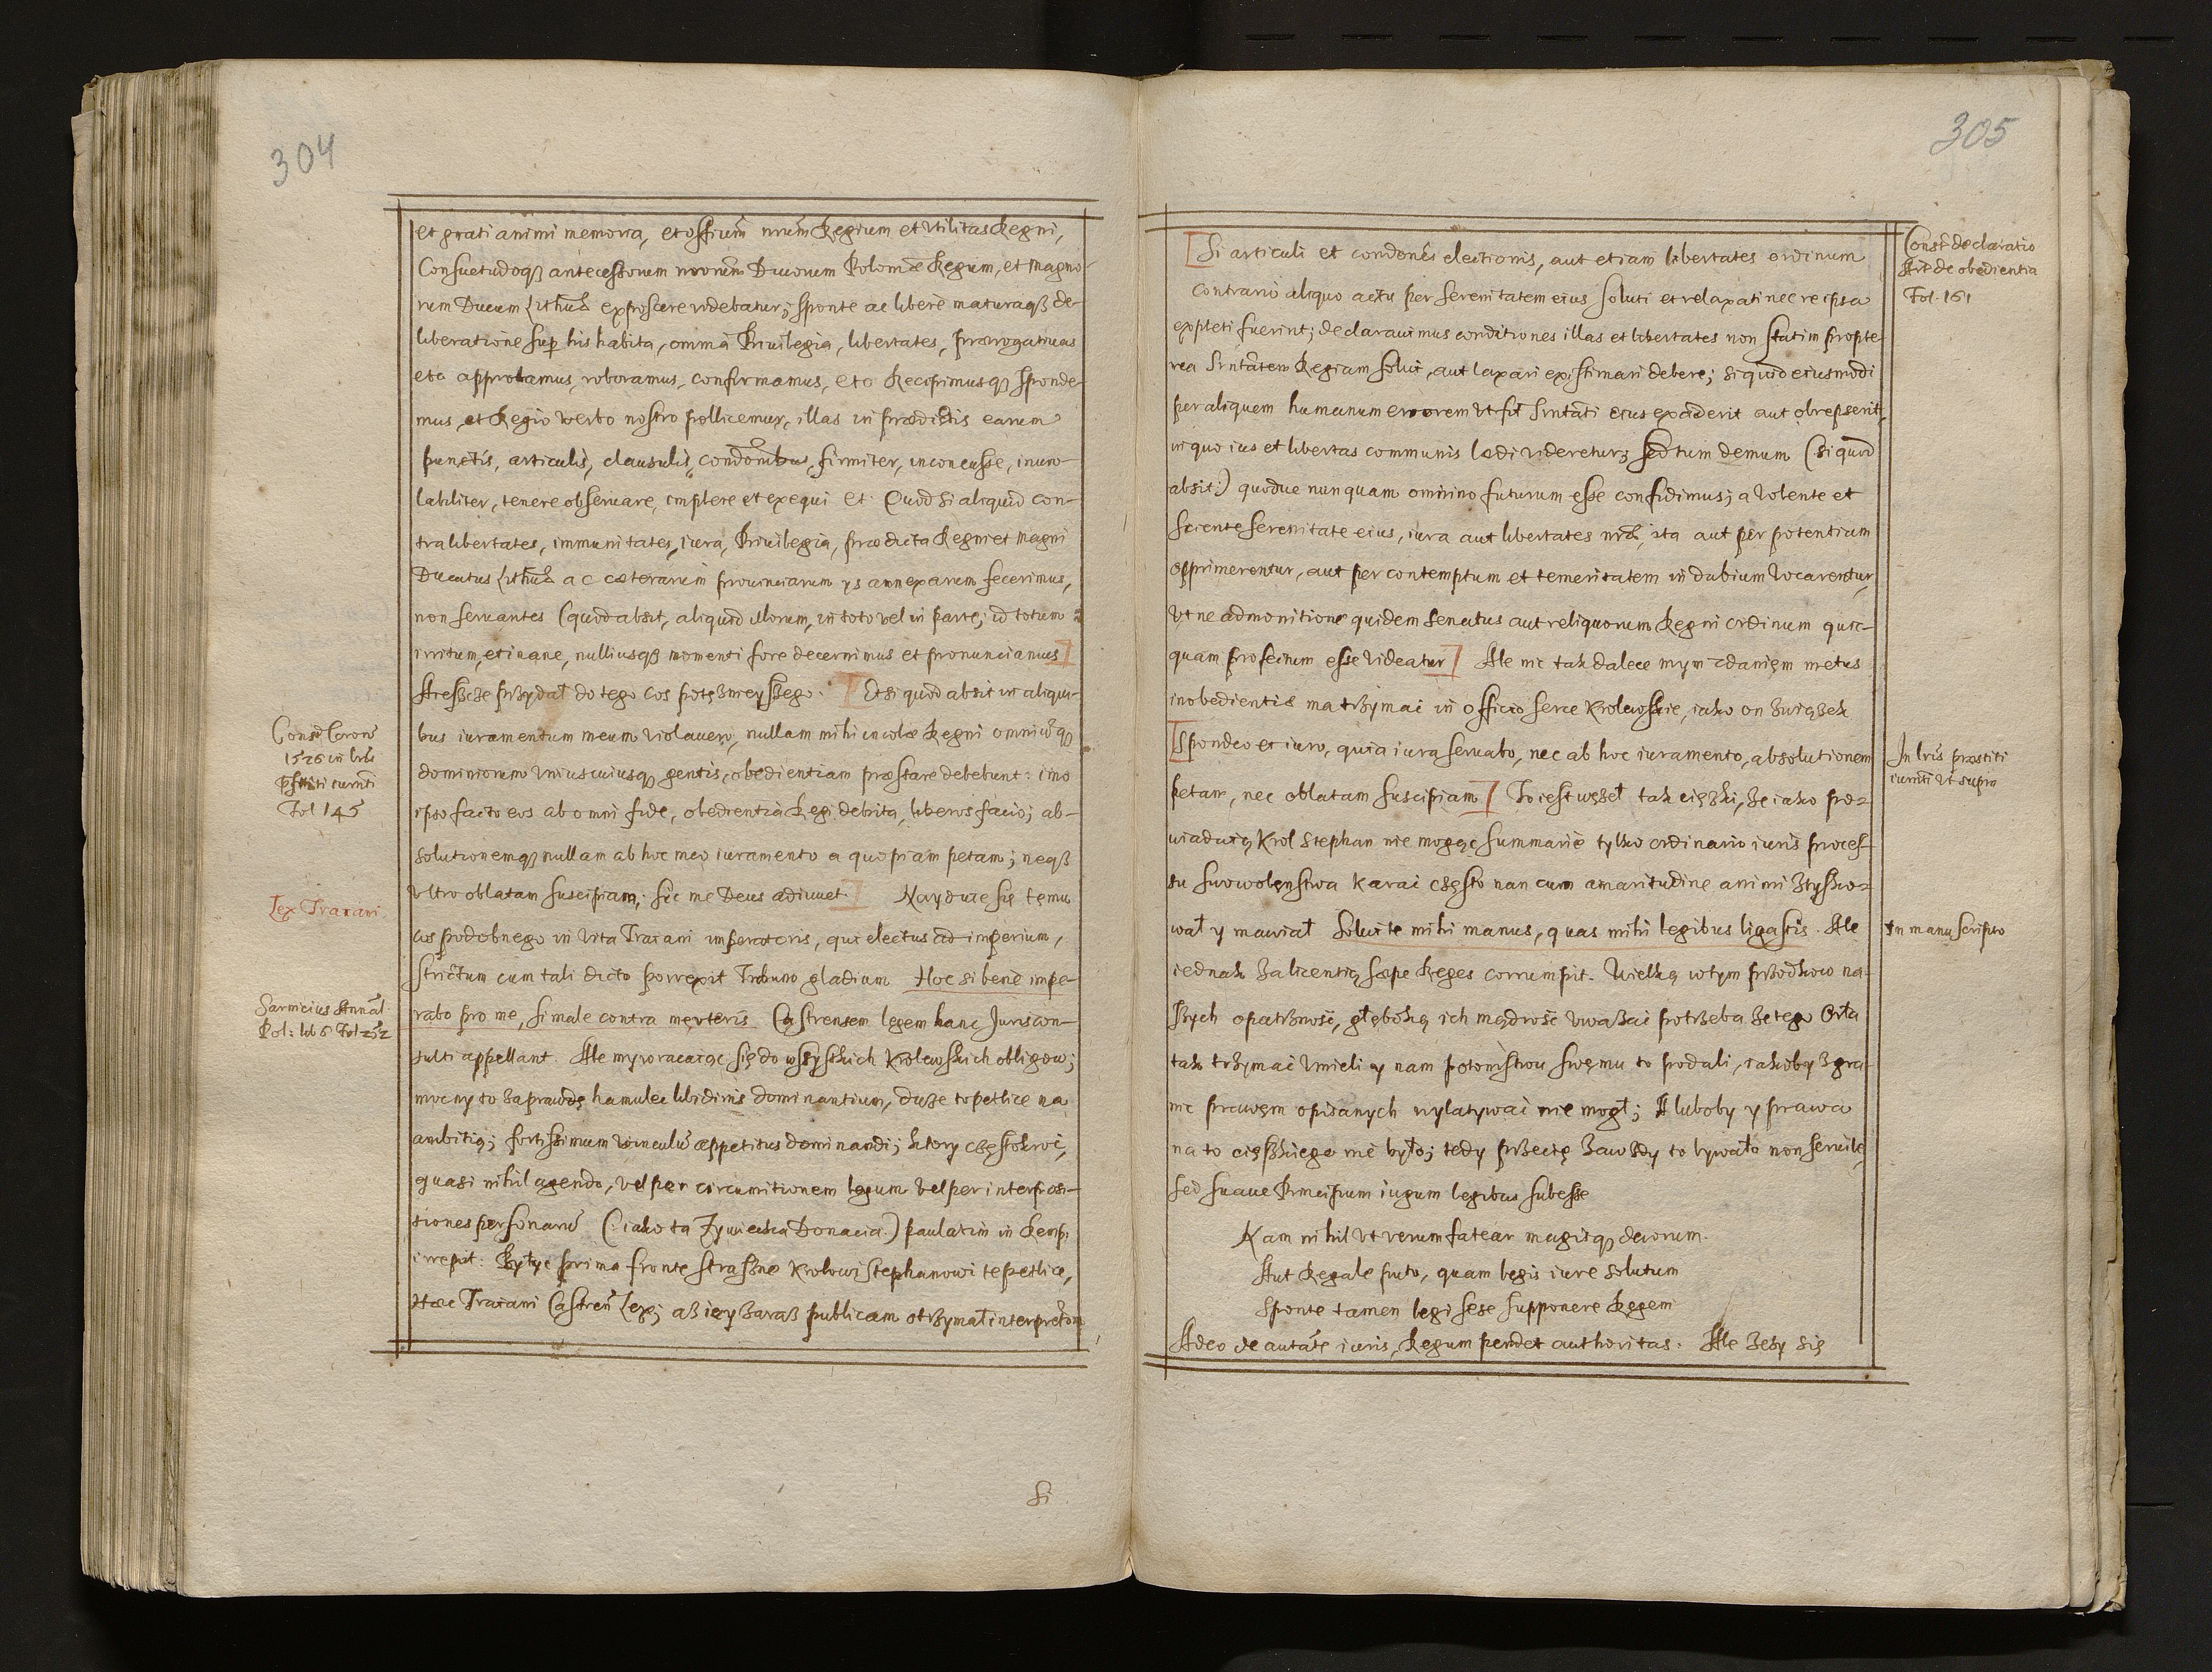 304
et grati animi memoria, et officiũ nrũm Regium et Utilitas Regni,
Consuetudoqȝ antecessorum nrorũm Divorum Poloniæ Regum, et Magno-
rum Ducum Lithuæ exposcere videbatur; sponte ac libere maturaqȝ de-
liberatione super his habita, omnia Privilegia, libertates, prærogativas
etc approbamus, roboramus, confirmamus, etc Recipimusqȝ sponde-
mus, et Regio verbo nostro pollicemur, illas in prædictis earum
punctis, articulis, clausulis, condõnibus, firmiter, inconcusse, invio-
labiliter, tenere observare, implere et exequi et. Quod si aliquid con-
tra libertates, immunitates, iura, Privilegia, prædicta Regni et Magni
Ducatus Lithuæ ac cæterarum provinciarum ys annexarum fecerimus,
non servantes (quod absit, aliquid illorum, in toto vel in parte; id totum
irritum, et inane, nulliusqȝ momenti fore decernimus et pronunciamus]
Areszcze przydał do tego cos potężnieyszego. [Et si quod absit in aliqui-
bus iuramentum meum violavero, nullam mihi incolæ Regni omniũqȝ
dominiorum uniuscuiusqȝ gentis, obedientiam præstare debebunt: imo
ipso facto eos ab omni fide, obedientia Regi debita, liberos facio; ab-
solutionemqȝ nullam ab hoc meo iuramento a quopiam petam; neqȝ
Ultro oblatam suscipiam; sic me Deus adiuvet] Nayduie się temu
cos podobnego in vita Traiani imperatoris, qui electus ad imperium,
strictum cum tali dicto porrexit Tribuno gladium Hoc si bene impe-
rabo pro me, si male contra me uteris Castrensem legem hanc Juriscon-
sulti appellant. Ale my wracaiąc się do wszystkich Krolewskich obligow;
mocny to zaprawdę hamulec libidinis dominantium, duże to petlice na
ambitią; fortissimum vinculũ appetitus dominandi; ktory częstokroć,
quasi nihil agendo, vel per circumitionem legum vel per interposi-
tiones personarũ (iako ta Zywiecka Donacia.) paulatim in Remp:
irrepit. Byłyć prima fronte straszne Krolowi Stephanowi te petlice,
Hæc Traiani Castren̄ Lex; aż iey zaraz publicam otrzymał interpretõm
Si
Const Coron̄
1576 in lris
præstiti iurmti
Fol 145
Lex Traiani
Sarnicius Annal.
Pol: lib 6 Fol 252
305
[Si articuli et condones electionis, aut etiam libertates ordinum
contrario aliquo actu per Serenitatem eius soluti et relaxati nec re ipsa
expleti fuerint; declaravimus conditiones illas et libertates non statim propte-
rea Srntatem Regiam solui, aut laxari existimari debere; si quid eiusmodi
per aliquem humanum errorem ut fit Srntati eius exciderit aut obrepserit,
in quo ius et libertas communis lædi videretur; sed tum demum (si quid
absit:) quodue nunquam omnino futurum esse confidimus; a volente et
sciente Serenitate eius, iura aut libertates nræ, ita aut per potentiam
opprimerentur, aut per contemptum et temeritatem in dubium vocarentur,
ut ne admonitione quidem Senatus aut reliquorum Regni ordinum quic-
quam profectum esse videatur] Ale nie tak dalece mym zdaniem metus
inobedientiæ ma trzymac in officio serce Krolewskie, iako on związek
[Spondeo et iuro, quia iura servabo, nec ab hoc iuramento, absolutionem
petam, nec oblatam suscipiam] To iest węzeł tak cięzki, że iako po-
wiadaią Krol Stephan nie mogąc summarie tylko ordinario iuris proces-
su swowolęnstwa karac często nan cum amaritudine animi Stysko-
wał y mawiał Soluite mihi manus, quas mihi legibus ligastis. Ale
iednak za licentią sæpe Reges corrumpit. Wielką w tym przodkow na-
szych opatrznosc, głęboką ich mądrosc uważac potrzeba że tego Orła
tak trzymac umieli y nam potomstwu swęmu to podali, iakoby z gra-
nic prawęm opisanych wylatywac nie mogł; A luboby y prawa
na to cięszkiego nie było; tedy przecię zawżdy to bywało non servile,
sed suave Principum iugum legibus subesse
Nam nihil ut verum fatear magisqȝ decorum.
Aut Regale puto, quam legis iure solutum
Sponte tamen legi sese supponere Regem
Adeo de autãte iuris, Regum pendet authoritas. Ale żeby się
Const declaratio
Art de obedientia
Fol. 161
In lris præstiti
iurmti ut supra
In manuscripto